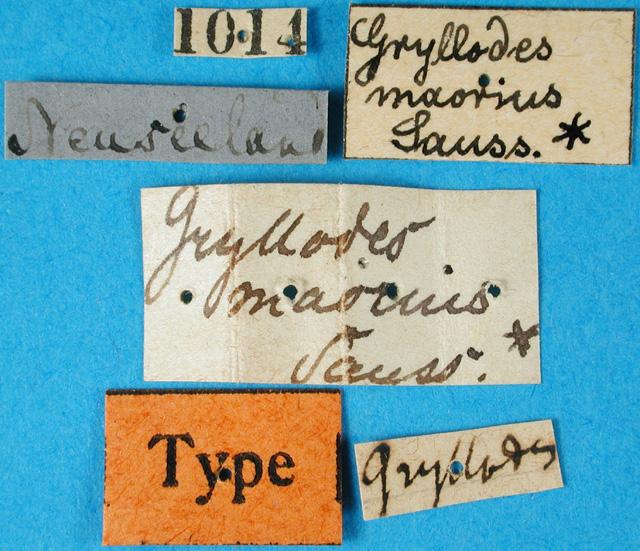 1014
Gryllodes
maorius
Sauss. *
Neuseeland
Gryllodes
maorius
Sauss. *
Type
Gryllodes